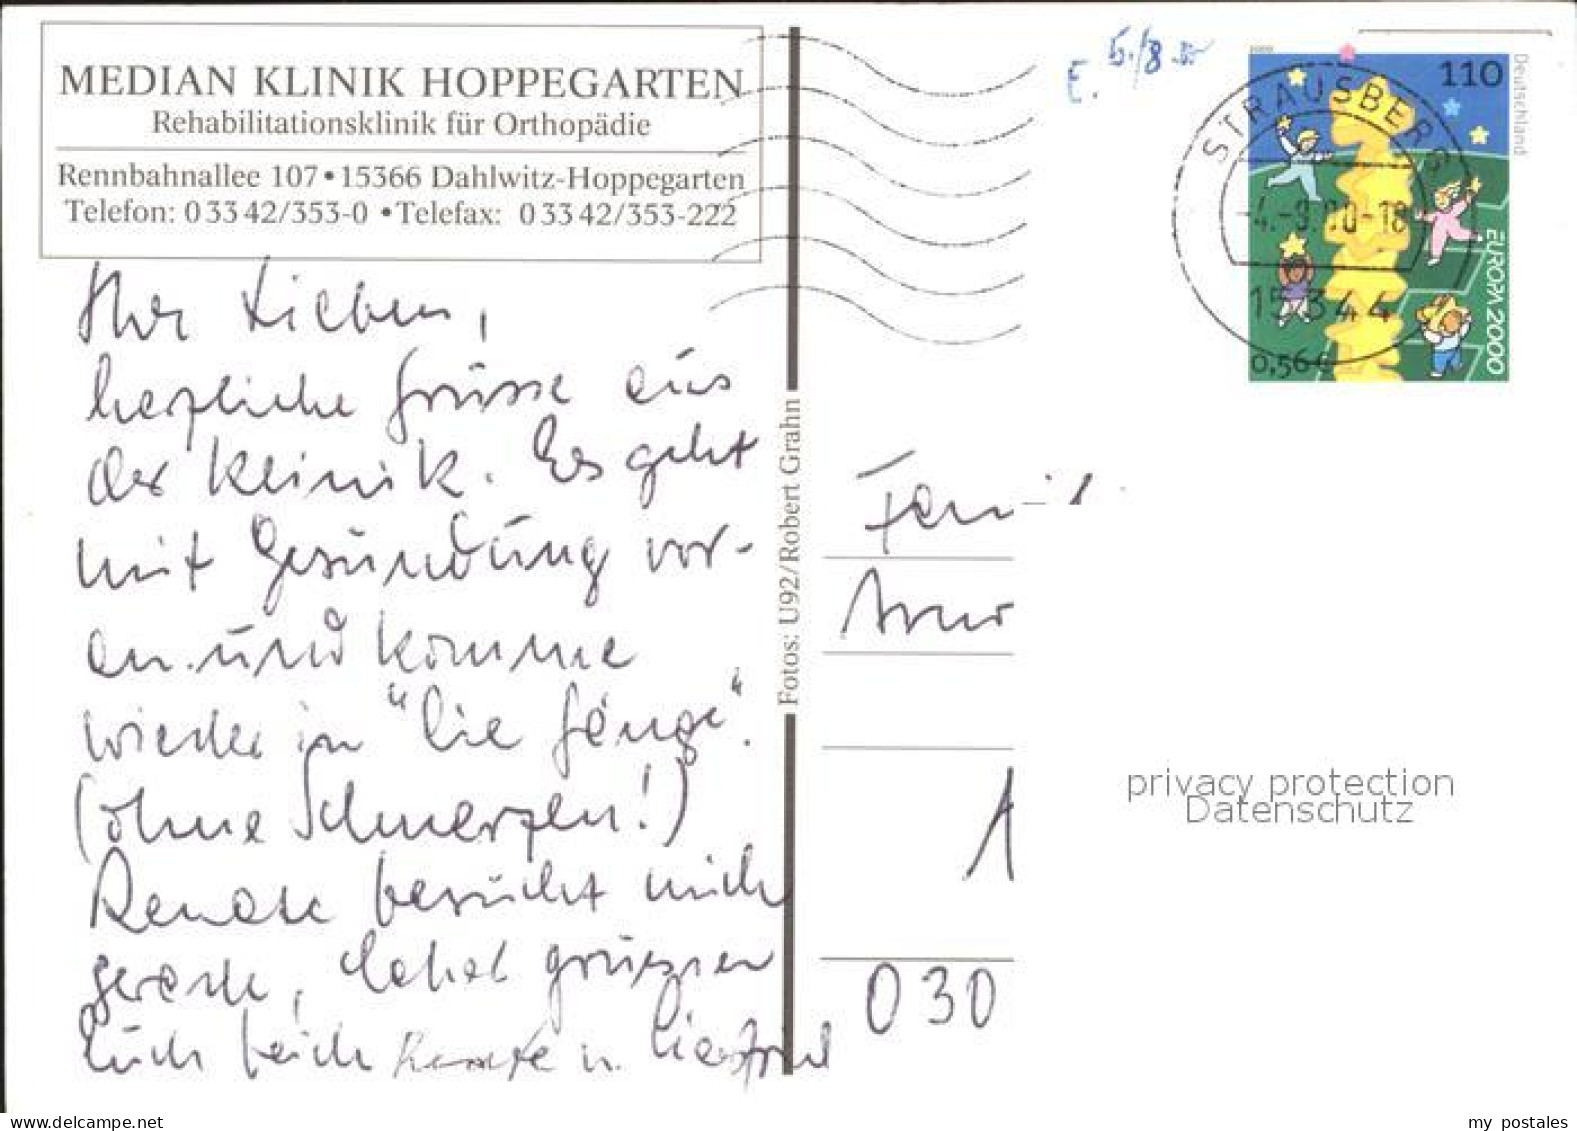 MEDIAN KLINIK HOPPEGARTEN
Rehabilitationsklinik für Orthopädie
Rennbahnallee 107 • 15366 Dahlwitz-Hoppegarten
Telefon: 0 33 42/353-0 • Telefax: 0 33 42/353-222
Ihr Lieben,
herzliche Grüsse aus
der Klinik. Es geht
mit Gesundung vor-
an und komme
wieder in "die Gänge".
(ohne Schmerzen!)
Renate besucht mich
gerade, dabei grüssen
Euch beide Renate u.
Fotos: U92/Robert Grahn
E. 5./8.
2000
110
Deutschland
EUROPA 2000
0,56 €
STRAUSBERG
-4.-9.00-18
15344
Fami
A
030
privacy protection
Datenschutz
delcampe.net
my postales